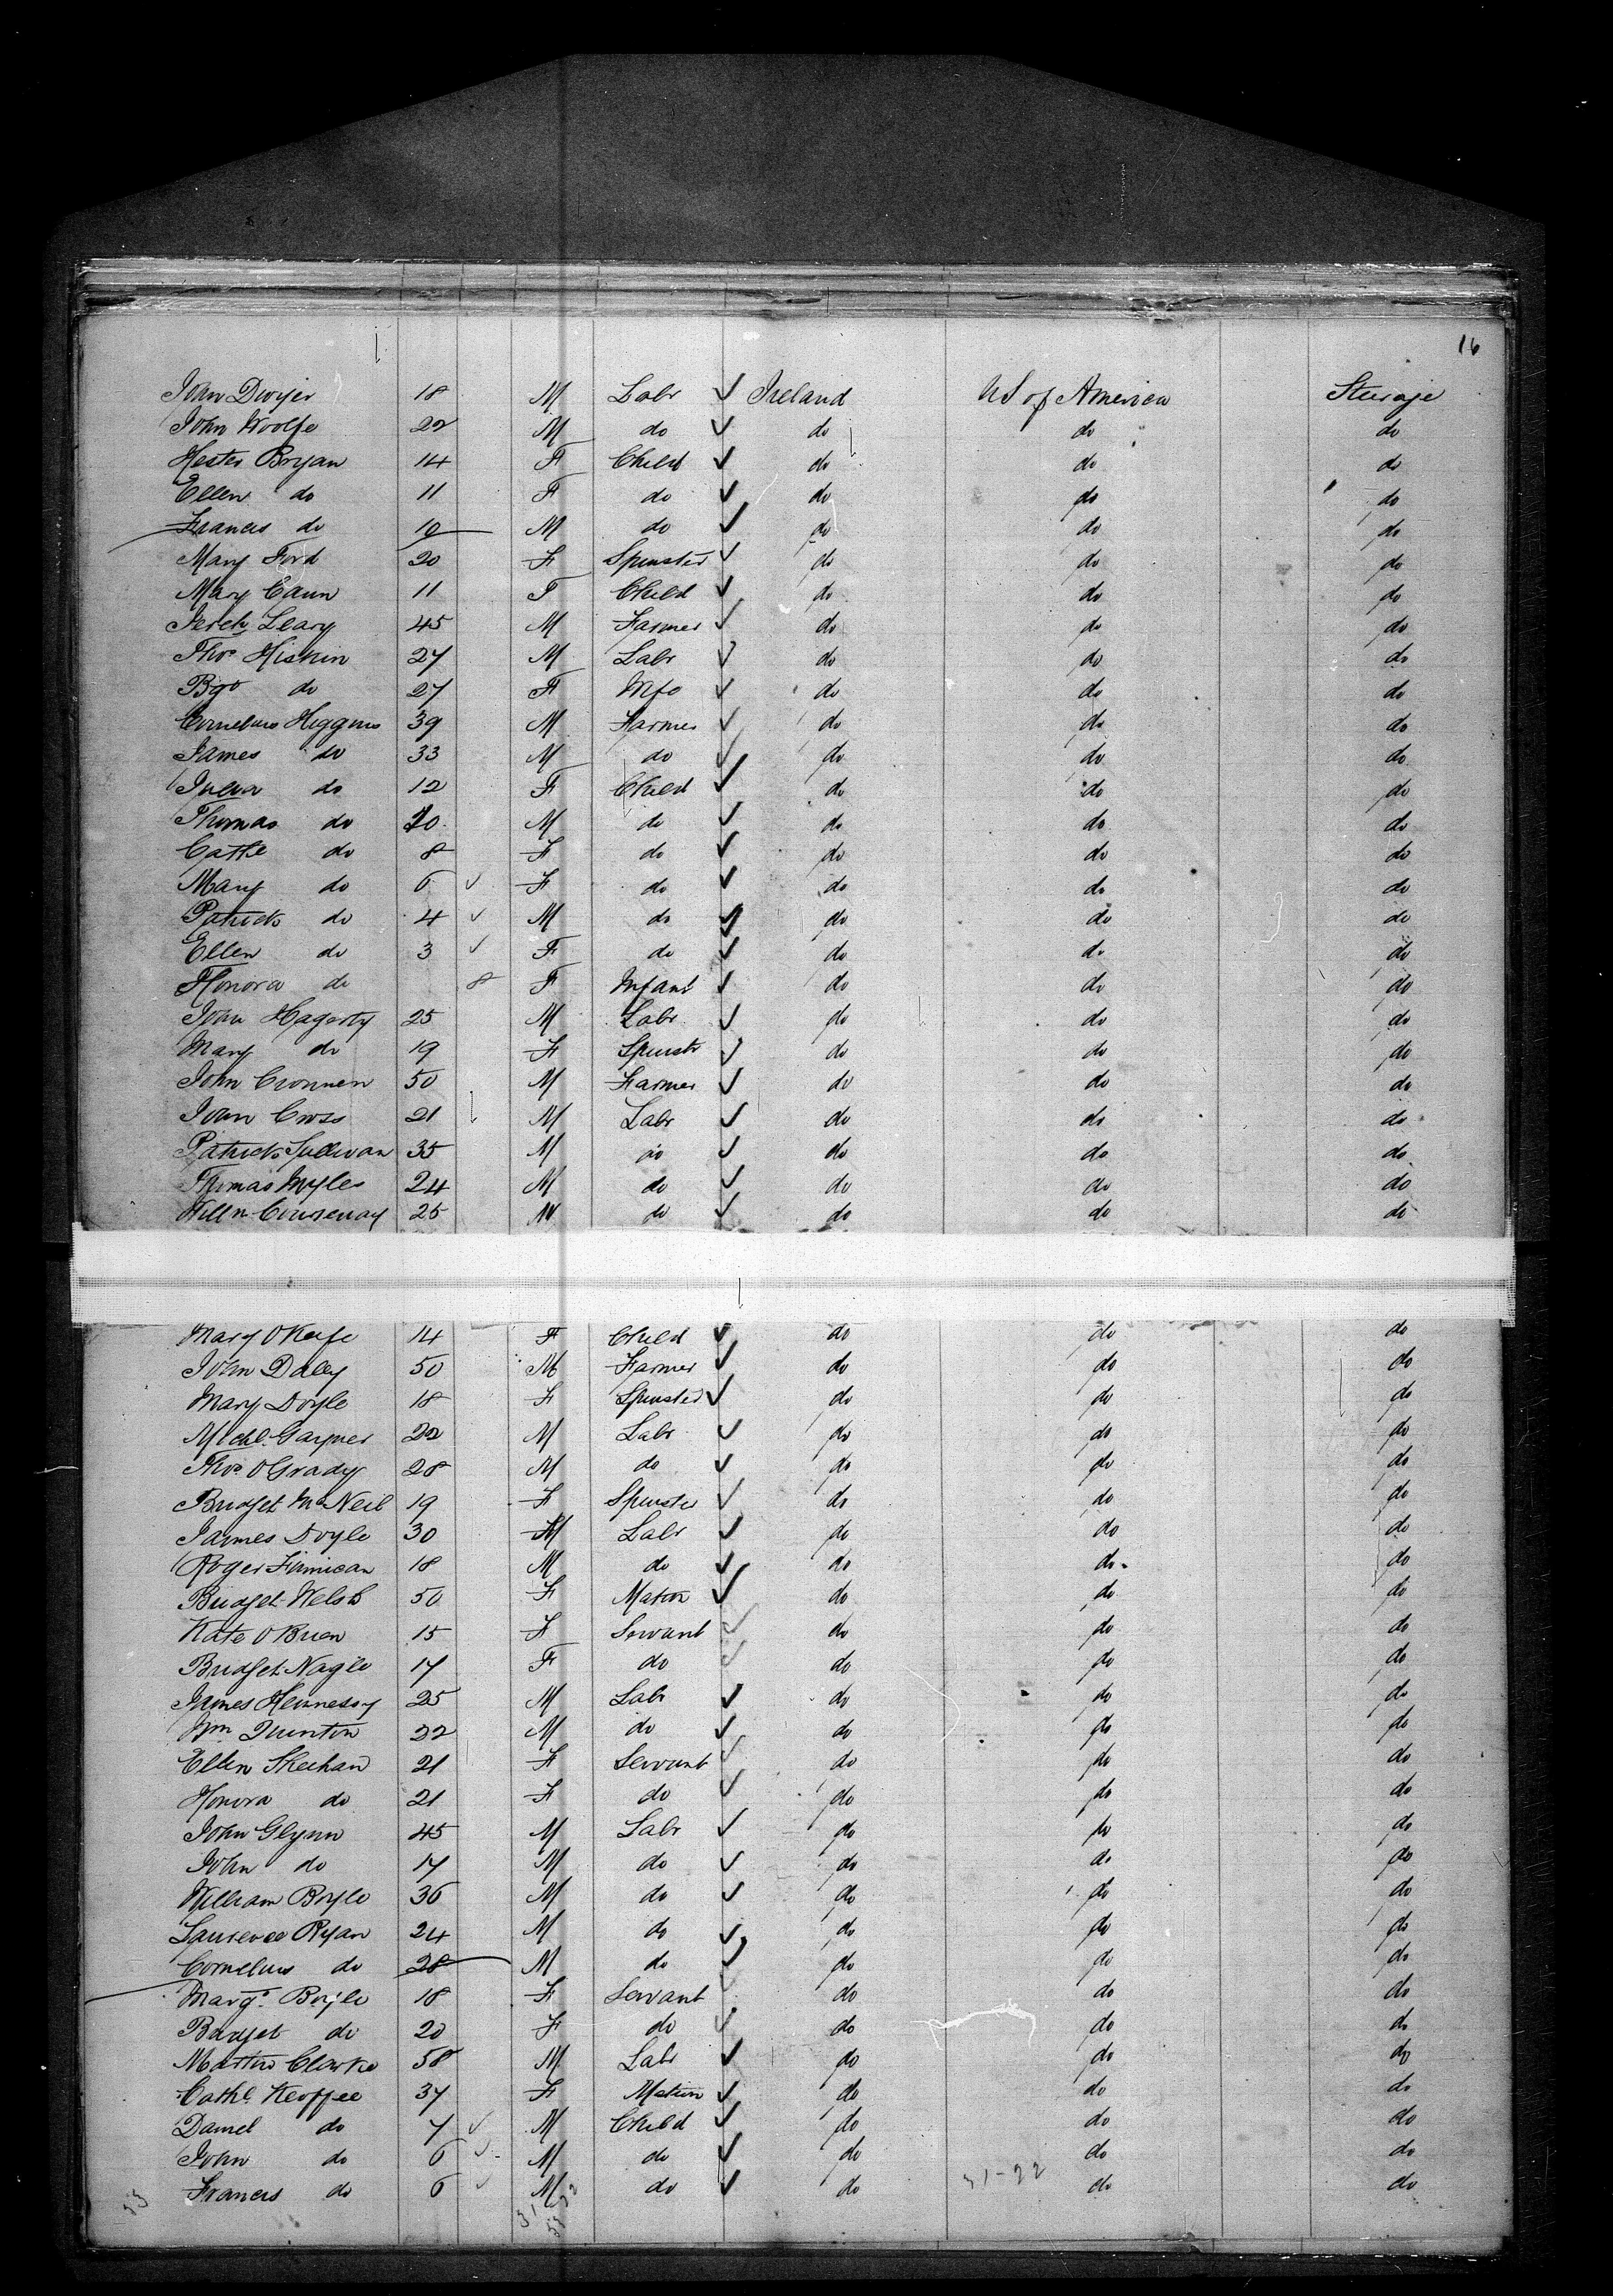 16
John Dwyer 18 M Labr Ireland US of America Steraje
John Woolfe 22 M do do do do
Hester Bryan 14 F Child do do do
Ellen do 11 F do do do do
Francis do 10 M do do do do
Mary Ford 20 F Spinster do do do
Mary Caun 11 F Child do do do
Jerch Leary 45 M Farmer do do do
Thos Hiskin 27 M Labr do do do
Bgt do 27 F Wife do do do
Cornelius Higgins 39 M Farmer do do do
James do 33 M do do do do
Julia do 12 F Child do do do
Thomas do 10 M do do do do
Cathe do 8 F do do do do
Mary do 6 F do do do do
Patrick do 4 M do do do do
Ellen do 3 F do do do do
Honora do 8 F Infant do do do
John Hagerty 25 M Labr do do do
Mary do 19 F Spinstr do do do
John Cronnen 50 M Farmer do do do
John Cross 21 M Labr do do do
Patrick Sullivan 35 M do do do do
Thomas Myles 24 M do do do do
Willm 25 M do do do do
Mary OKeefe 14 F Child do do do
John Daley 50 M Farmer do do do
Mary Doyle 18 F Spinster do do do
Michl. 22 M Labr do do do
Thos OGrady 28 M do do do do
Bridget McNeil 19 F Spinster do do do
James Doyle 30 M Labr do do do
Roger Finnican 18 M do do do do
Bridget Welsh 50 F Matron do do do
Kate OBrien 15 F Servant do do do
Bridget Nagle 17 F do do do do
James Hennessy 25 M Labr do do do
Wm Quinton 22 M do do do do
Ellen Skeehan 21 F Servant do do do
Honora do 21 F do do do do
John Glynn 45 M Labr do do do
John do 17 M do do do do
William Boyle 36 M do do do do
Laurence Ryan 24 M do do do do
Cornelius do 28 M do do do do
Margt. Boyle 18 F Servant do do do
Bridget do 20 F do do do do
Martin Clarke 58 M Labr do do do
Cathe. Keoffee 37 F Matron do do do
Daniel do 7 M Child do do do
John do 6 M do do do do
Francis do 6 M do do do do
31-22
33
31 22
53